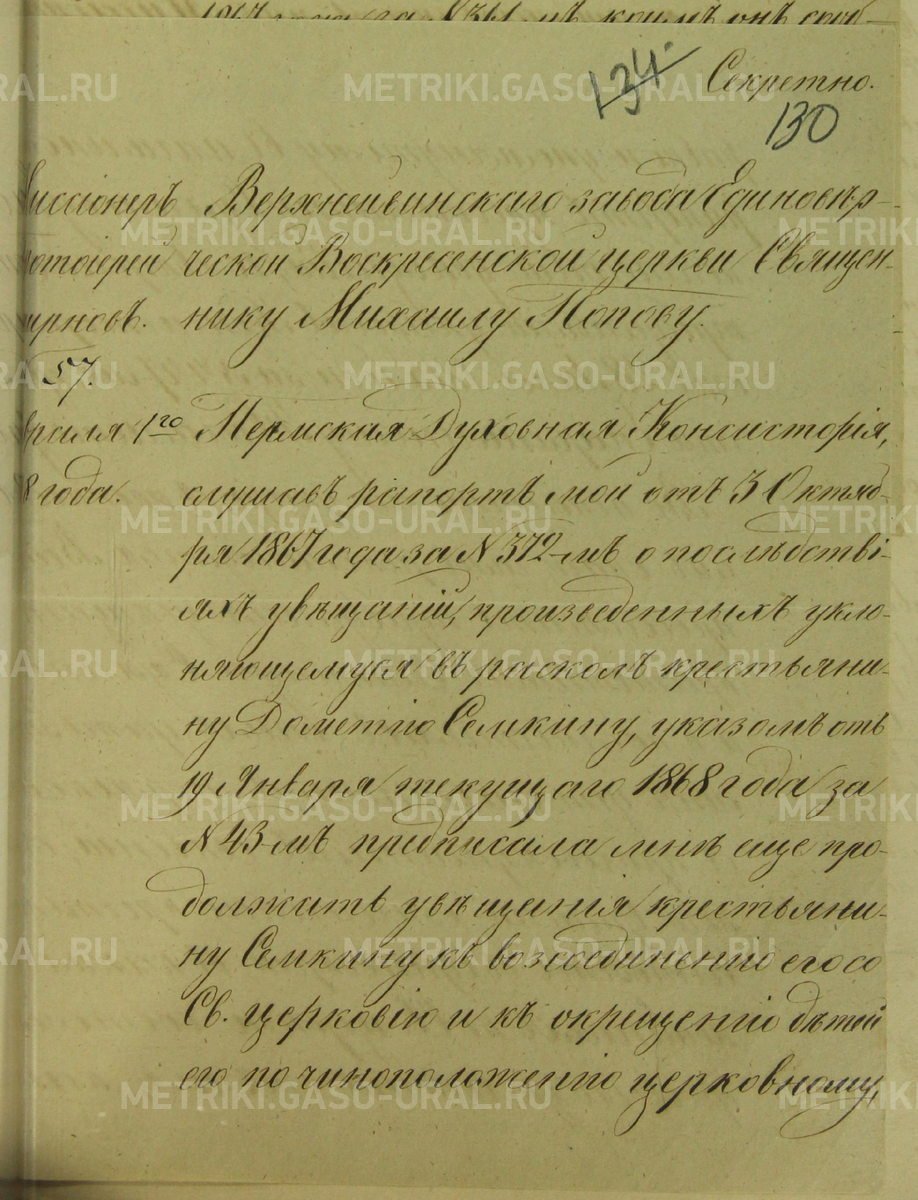 Секретно.
134.
130
иссіонеръ
ротоіерей
мирновъ.
57.
враля 1го
8 года.
Верхнейвинскаго завода Единовѣр-
ческой Воскресенской церкви Священ-
нику Михаилу Попову.
Пермская Духовная Консисторія,
слушавъ рапортъ мой отъ 3 Октяб-
ря 1867 года за N 372-мъ о послѣдстві-
яхъ увѣщаній, произведенныхъ укло-
няющемуся въ расколъ крестьяни-
ну Дометію Семкину, указомъ отъ
19 Января текущаго 1868 года за
N 43-мъ предписала мнѣ еще про-
должать увѣщанія крестьяни-
ну Семкину къ возсоединенію его со
Св. церковію и къ окрещенію дѣтей
его по чиноположенію церковному,
METRIKI.GASO-URAL.RU